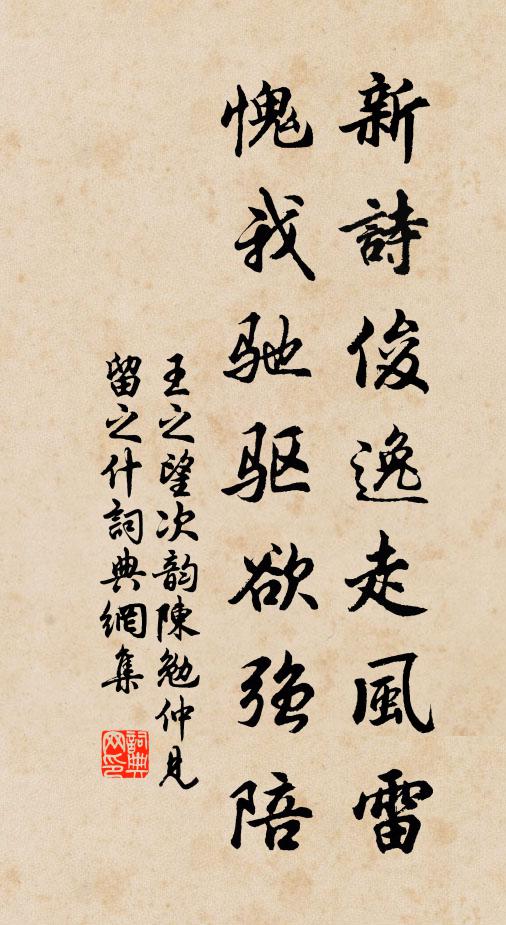 新詩俊逸走風雷
愧我驰驱欲強陪
王之望次韵陳勉仲見
留之什詞典網集
詞典
网印